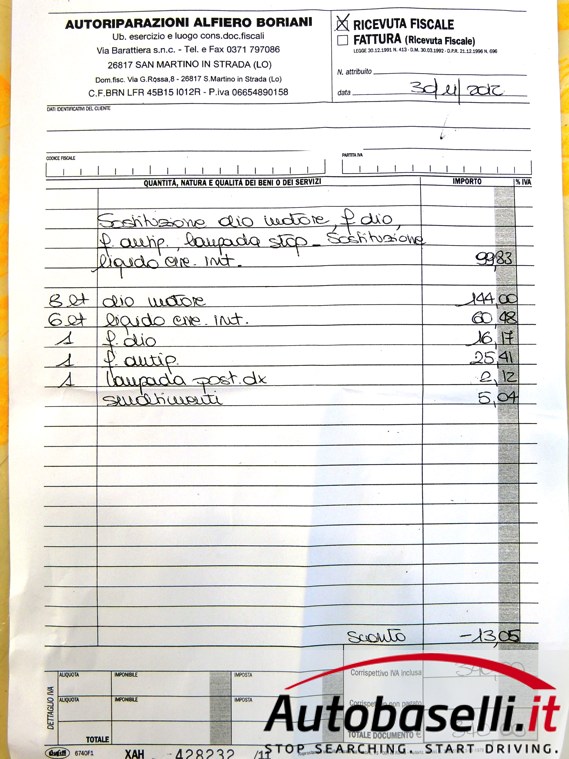 AUTORIPARAZIONI ALFIERO BORIANI
Ub. esercizio e luogo cons.doc.fiscali
Via Barattiera s.n.c. - Tel. e Fax 0371 797086
26817 SAN MARTINO IN STRADA (LO)
Dom.fisc. Via G.Rossa,8 - 26817 S.Martino in Strada (LO)
C.F.BRN LFR 45B15 I012R - P.iva 06654890158
X RICEVUTA FISCALE
FATTURA (Ricevuta Fiscale)
LEGGE 30.12.1991 N. 413 - D.M. 30.03.1992 - D.P.R. 21.12.1996 N. 696
N. attribuito
data 30/11/2012
DATI IDENTIFICATIVI DEL CLIENTE
CODICE FISCALE PARTITA IVA
QUANTITÀ, NATURA E QUALITÀ DEI BENI O DEI SERVIZI IMPORTO % IVA
Sostituzione olio motore, f. olio,
f. antip., lampada stop - Sostituzione
liquido circ. int. 99,83
8 lt olio motore 144,00
6 lt liquido circ. int. 60,48
1 f. olio 16,17
1 f. antip. 25,41
1 lampada post. dx 2,12
smaltimenti 5,04
Sconto -13,05
DETTAGLIO IVA
ALIQUOTA IMPONIBILE IMPOSTA ALIQUOTA IMPONIBILE IMPOSTA
ALIQUOTA IMPONIBILE IMPOSTA ALIQUOTA IMPONIBILE
TOTALE
Corrispettivo IVA inclusa 340,00
Corrispettivo non pagato
TOTALE DOCUMENTO € 340,00
Autobaselli.it
STOP SEARCHING. START DRIVING.
6740F1 XAH 428232 /11